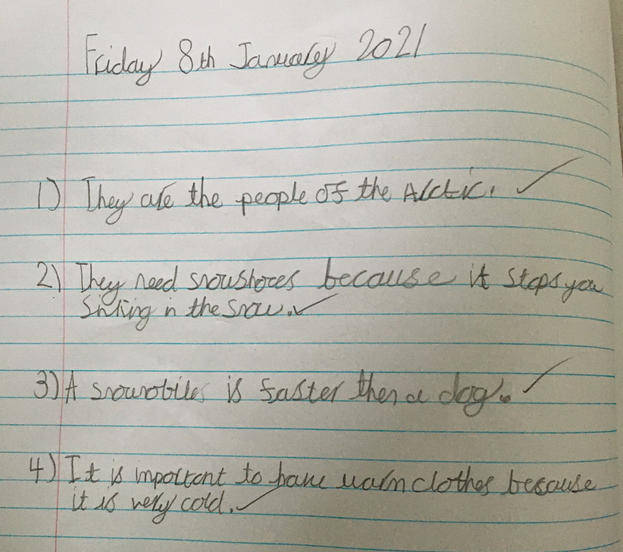 Friday 8th January 2021
1) They are the people of the Arctic.
2) They need snowshoes because it stops you
sinking in the snow.
3) A snowobiles is faster then a dog.
4) It is important to have warm clothes because
it is very cold.